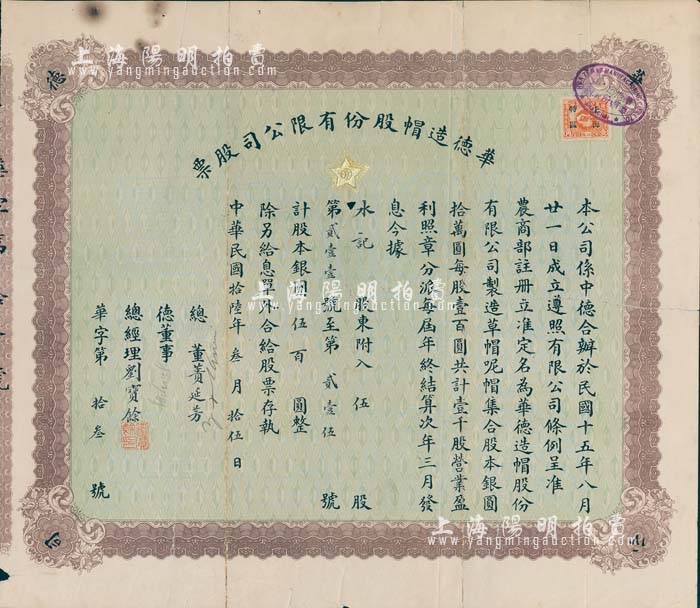 華德造帽股份有限公司股票
本公司係中德合辦於民國十五年八月
廿一日成立遵照有限公司條例呈准
農商部註册立准定名為華德造帽股份
有限公司製造草帽呢帽集合股本銀圓
拾萬圓每股壹百圓共計壹千股營業盈
利照章分派每屆年終結算次年三月發
息今據
水記 股東附入 伍 股
第貳壹壹號至第 貳壹伍 號
計股本銀圓伍百 圓整
除另給息單外合給股票存執
中華民國拾陸年 叁月 拾伍日
總董黃延芳
德董事
總經理劉寶餘
華字第 拾叁 號
德
上海陽明拍賣
www.yangmingauction.com
上海陽明拍賣
www.yangmingauction.com
上海陽明拍賣
www.yangmingauction.com